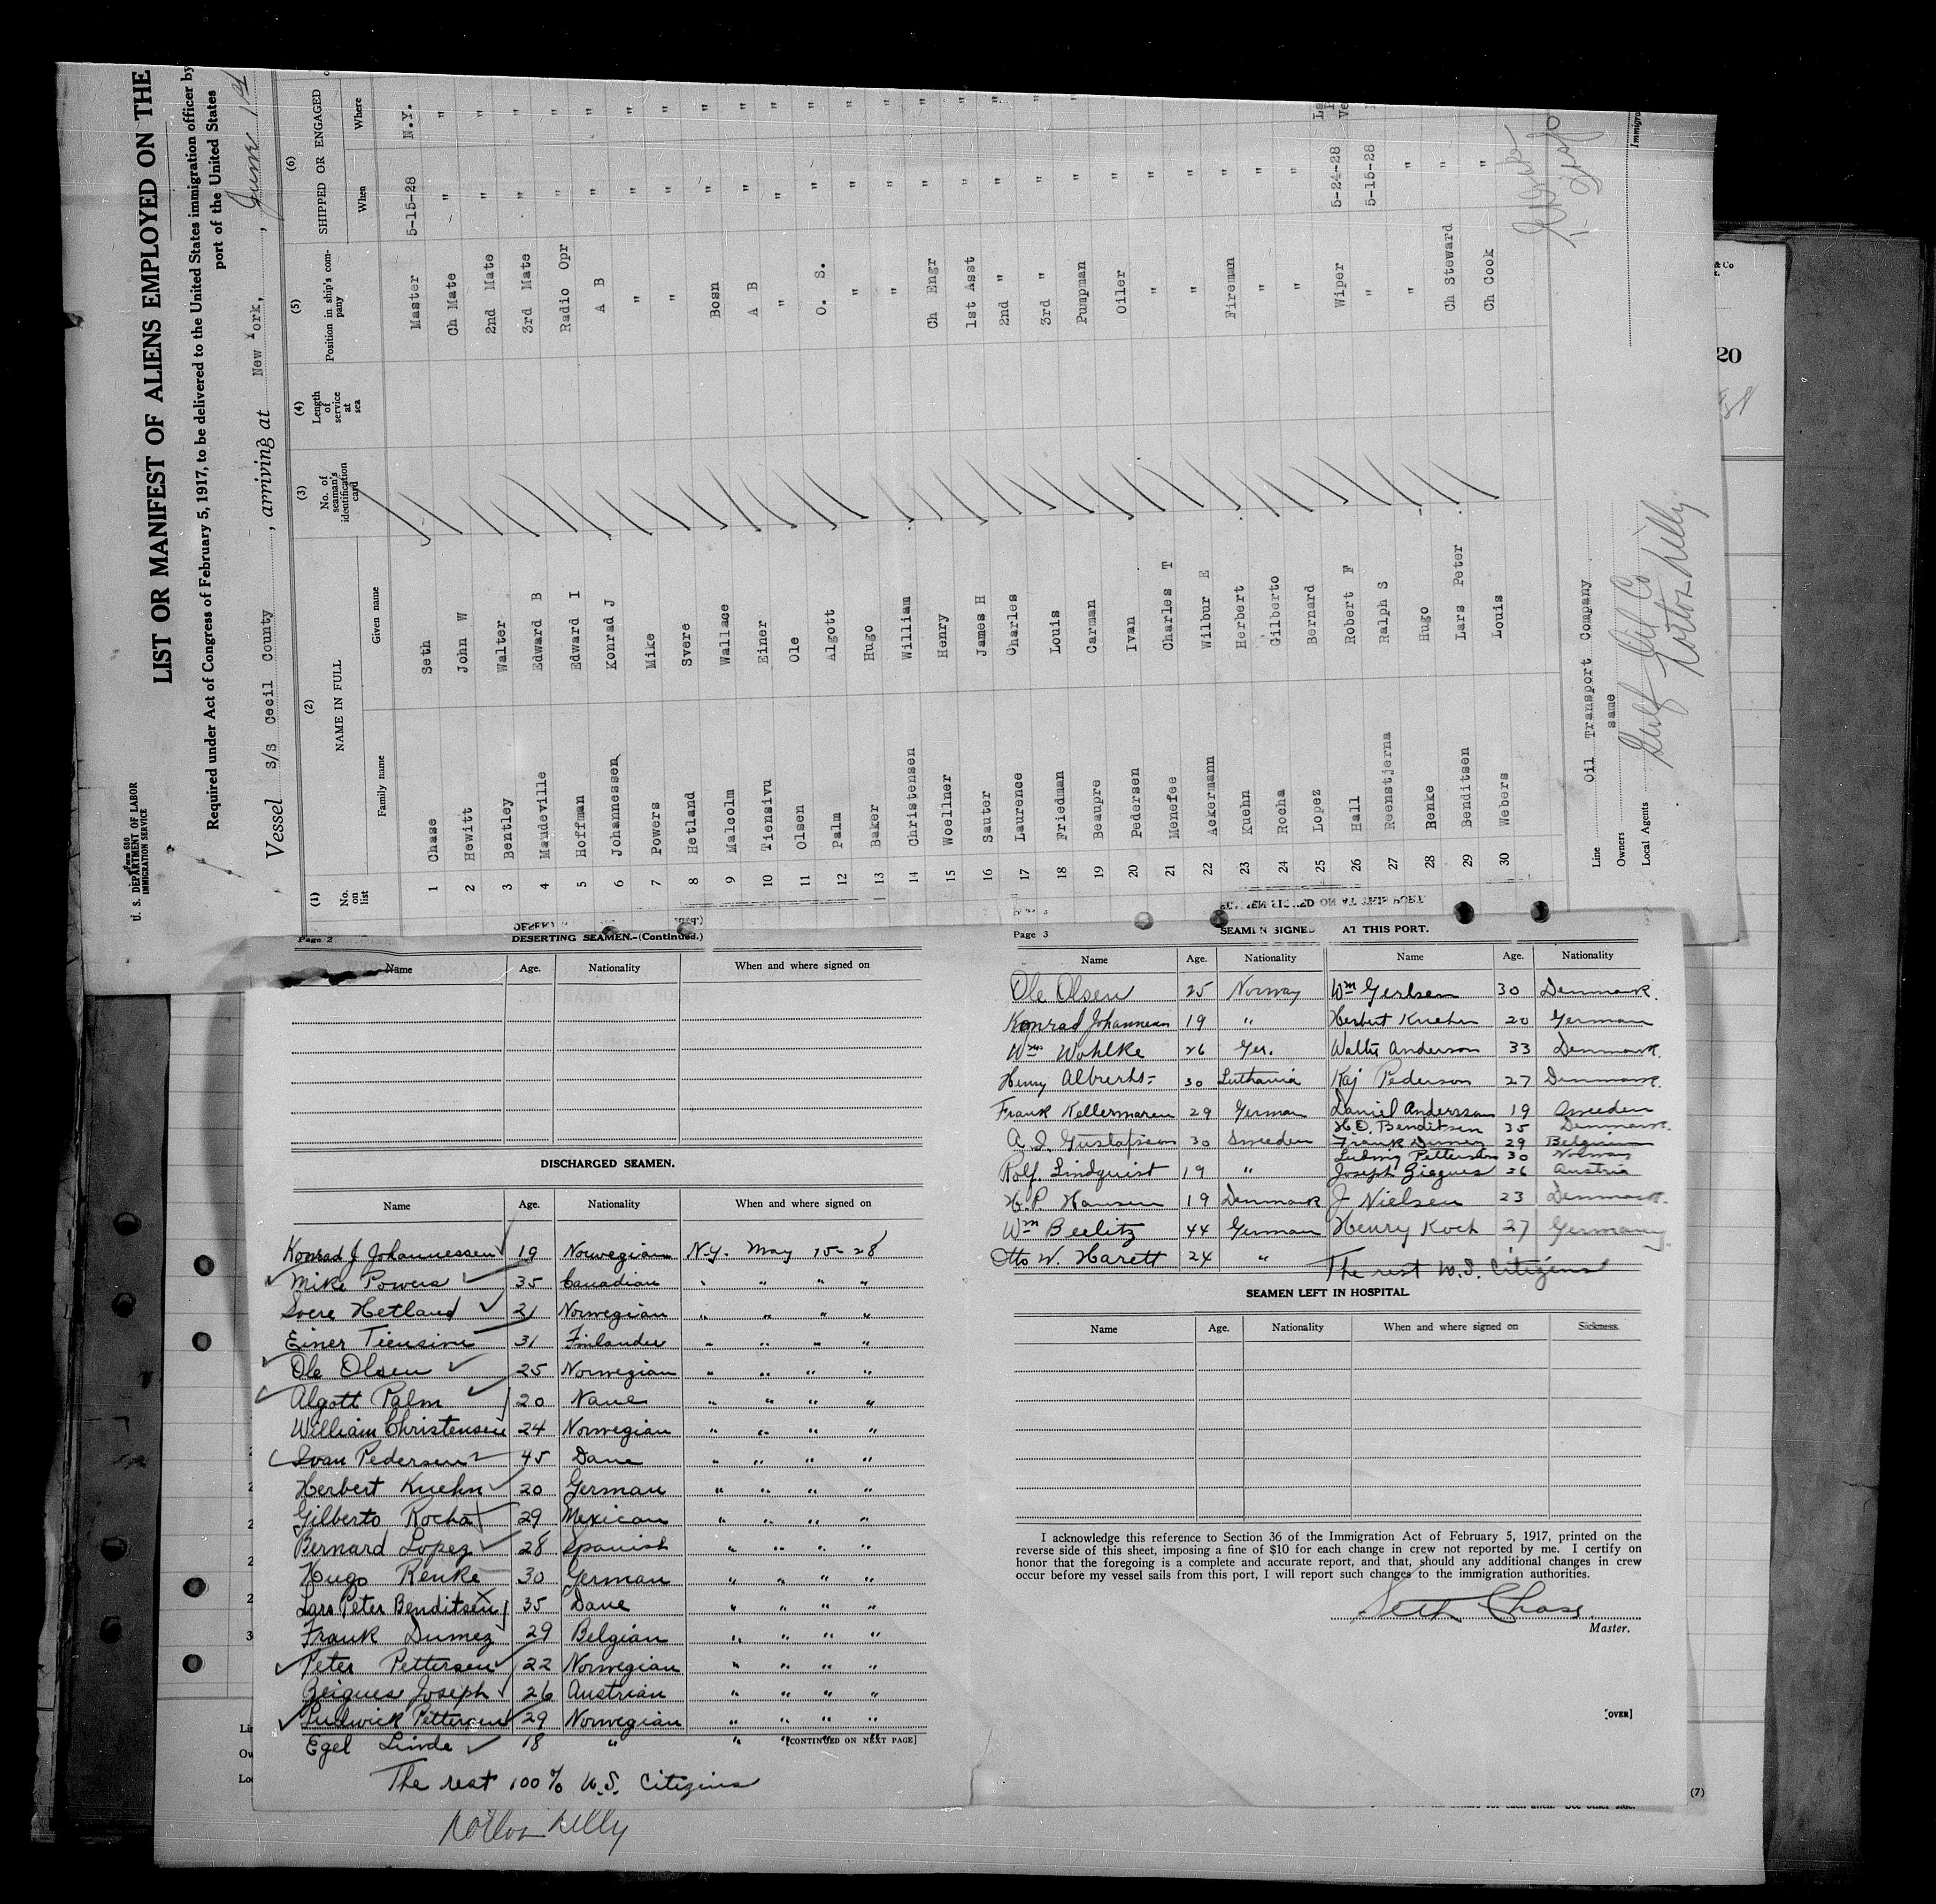 U. S. DEPARTMENT OF LABOR
IMMIGRATION SERVICE
LIST OR MANIFEST OF ALIENS EMPLOYED ON THE
Required under Act of Congress of February 5, 1917, to be delivered to the United States immigration officer by
port of the United States
Vessel S/S Cecil County, arriving at New York, June 1st
(1) (2) (3) (4) (5) (6)
No. on list NAME IN FULL No. of seaman's identification card Length of service at sea Position in ship's company SHIPPED OR ENGAGED
Family name Given name When Where
1 Chase Seth Master 5-15-28 N.Y.
2 Hewitt John W Ch Mate " "
3 Bentley Walter 2nd Mate " "
4 Mandeville Edward B 3rd Mate " "
5 Hoffman Edward I Radio Opr " "
6 Johannessen Konrad J A B " "
7 Powers Mike " " "
8 Hetland Svere " " "
9 Malcolm Wallace Bosn " "
10 Tiensivu Einer A B " "
11 Olsen Ole " " "
12 Palm Algott O. S. " "
13 Baker Hugo " " "
14 Christensen William " " "
15 Woellner Henry Ch Engr " "
16 Sauter James H 1st Asst " "
17 Laurence Charles 2nd " " "
18 Friedman Louis 3rd " " "
19 Beaupre Carman Pumpman " "
20 Pedersen Ivan Oiler "
21 Menefee Charles T " "
22 Ackermann Wilbur E " "
23 Kuehn Herbert Fireman "
24 Rocha Gilberto " "
25 Lopez Bernard " "
26 Hall Robert F Wiper 5-24-28
27 Reenstjerna Ralph S " 5-15-28
28 Benke Hugo " "
29 Benditsen Lars Peter Ch Steward "
30 Webers Louis Ch Cook "
Line Oil Transport Company
Owners same
Local Agents Gulf Oil Co
Page 2
DESERTING SEAMEN.-(Continued.)
Name Age. Nationality When and where signed on
DISCHARGED SEAMEN.
Name Age. Nationality When and where signed on
Konrad J Johannessen 19 Norwegian N.Y. May 15-28
Mike Powers 35 Canadian " " " "
Svere Hetland 21 Norwegian " " "
Einer Tiensivu 31 Finlander " " " "
Ole Olsen 25 Norwegian " " " "
Algott Palm 20 " " " "
William Christensen 24 Norwegian " " " "
Ivan Pedersen 45 Dane " " " "
Herbert Kuehn 20 German " " " "
Gilberto Rocha 29 Mexican " " " "
Bernard Lopez 28 Spanish " " " "
Hugo Renke 30 German " " " "
Lars Peter Benditsen 35 Dane " " " "
Frank Dumez 29 Belgian " " " "
Peter Pettersen 22 Norwegian " " " "
Joseph 26 Austrian " " " "
Ludwick Pettersen 29 Norwegian " " " "
Egel Linde 18 " " " " "
[CONTINUED ON NEXT PAGE]
The rest 100% U.S. Citizens
Page 3
SEAMEN SIGNED AT THIS PORT.
Name Age. Nationality Name Age. Nationality
Ole Olsen 25 Norway Wm Gerlsen 30 Denmark.
Konrad Johannesen 19 " Herbert Kuehn 20 German
Wm Wohlke 26 Ger. Walter Anderson 33 Denmark.
Henry Albrechts 30 Luthania Kaj Pederson 27 Denmark.
Frank Kellermaren 29 German Daniel Andersson 19 Sweeden
H.O. Benditsen 35 Denmark.
A. I. Gustafsson 30 Sweeden Frank Dumez 29 Belgium
Ludwig Pettersen 30 Norway
Rolf. Lindquist 19 " Joseph 26 Austria
H.P. Hansen 19 Denmark J Nielsen 23 Denmark.
Wm Beelitz 44 German Henry Koch 27 Germany
Otto W. Harett 24 " The rest U.S. Citizens
SEAMEN LEFT IN HOSPITAL
Name Age. Nationality When and where signed on Sickness.
I acknowledge this reference to Section 36 of the Immigration Act of February 5, 1917, printed on the
reverse side of this sheet, imposing a fine of $10 for each change in crew not reported by me. I certify on
honor that the foregoing is a complete and accurate report, and that, should any additional changes in crew
occur before my vessel sails from this port, I will report such changes to the immigration authorities.
Seth Chase
Master.
[OVER]
(7)